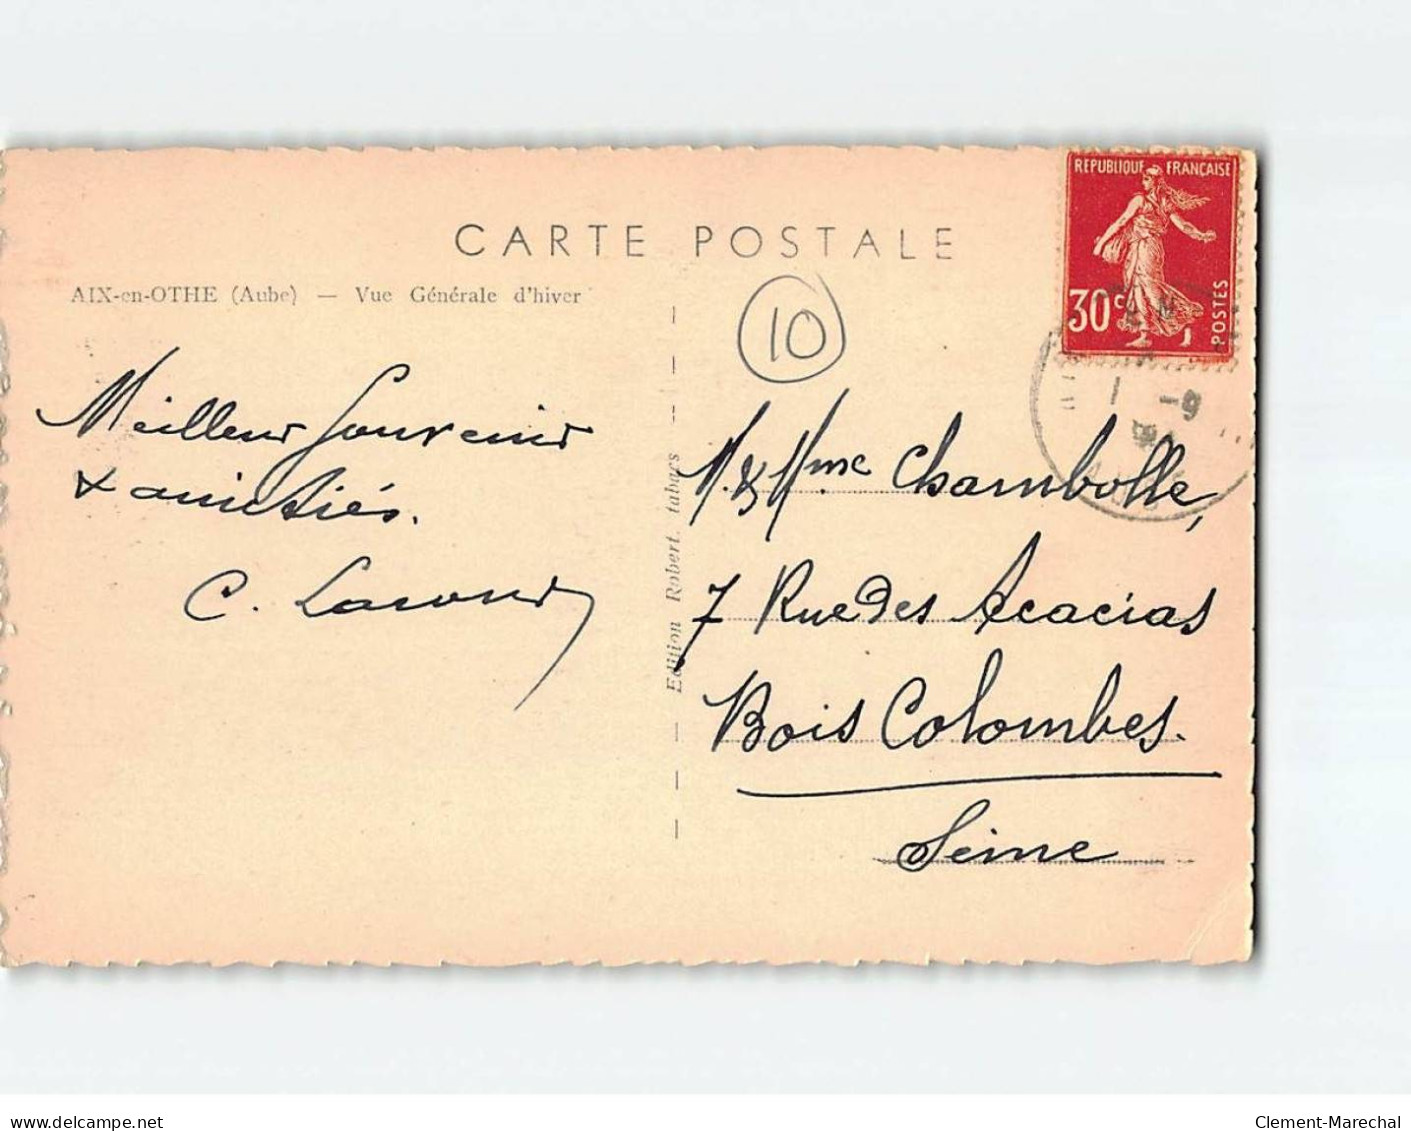 CARTE POSTALE
AIX-en-OTHE (Aube) — Vue Générale d'hiver
REPUBLIQUE FRANÇAISE
30c
POSTES
10
1 -9
Meilleurs Souvenirs
& amitiés.
C.
Edition Robert. tabacs
M. & Mme Chambolle,
7 Rue des Acacias
Bois Colombes.
Seine
delcampe.net
Clement-Marechal